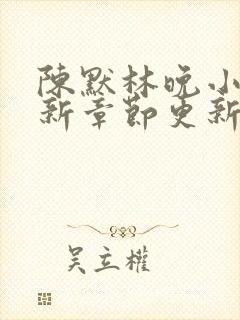 陳默林晚小
新章節更新
吴立權